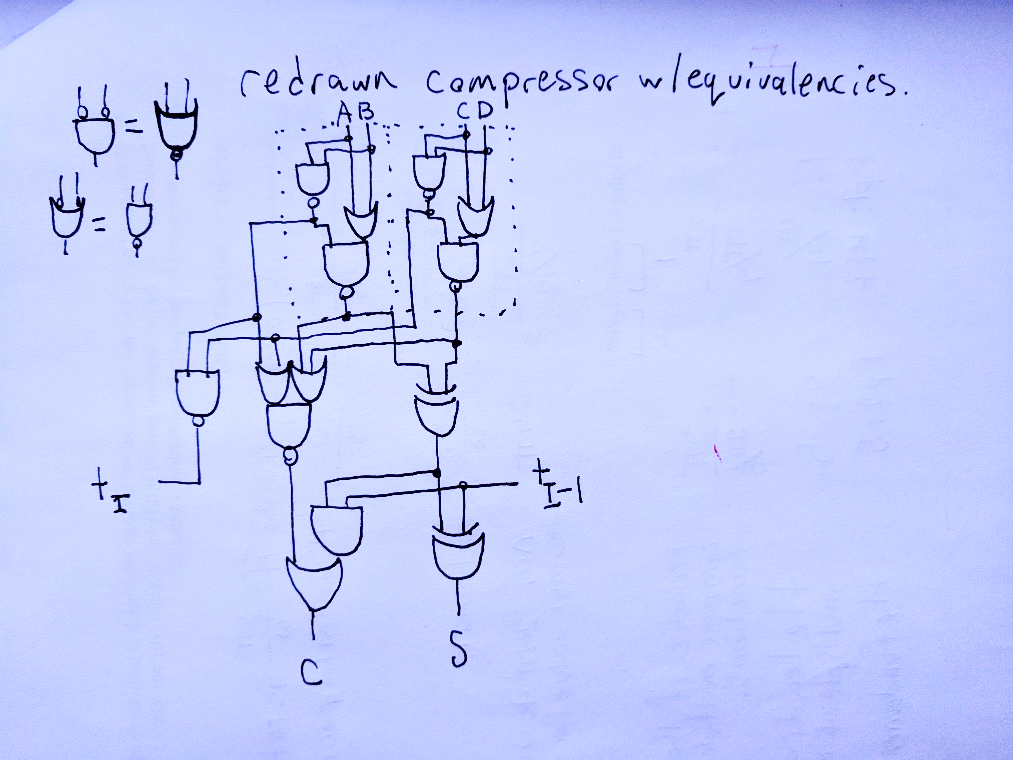 redrawn compressor w/equivalencies.
A B C D
=
=
t I
t I-1
C S